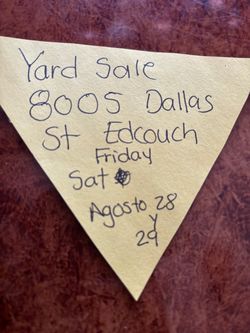 Yard Sale
8005 Dallas
St Edcouch
Friday
Sat
Agosto 28
y
29